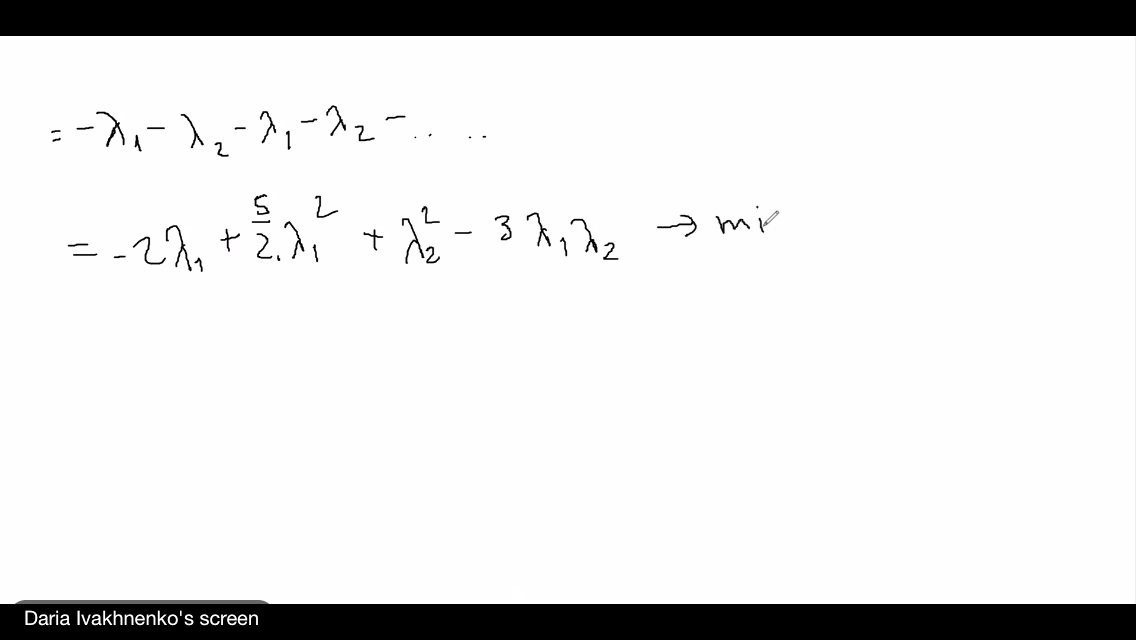 = -λ₁ - λ₂ - λ₁ - λ₂ - .. ..
= -2λ₁ + 5/2 · λ₁² + λ₂² - 3λ₁λ₂ → mi
Daria Ivakhnenko's screen